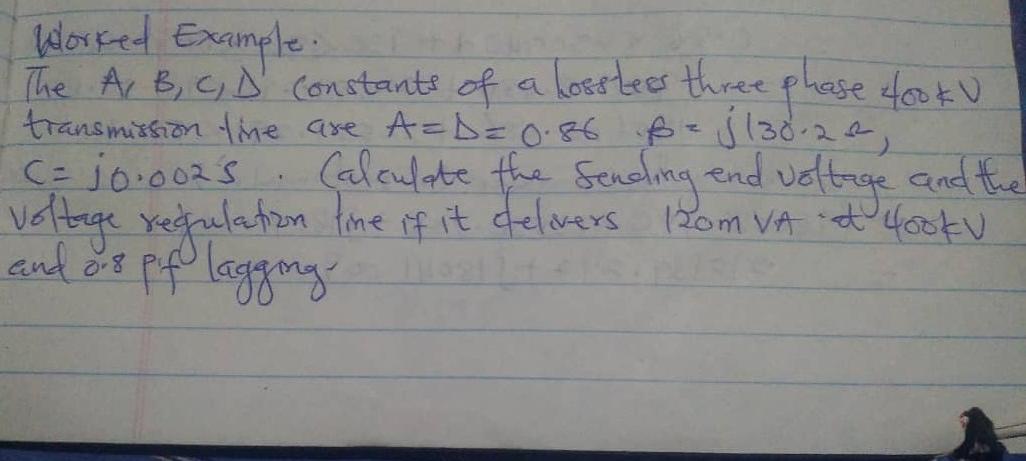 Worked Example.
The A, B, C, D constants of a lossless three phase 400kV
transmission line are A=D= 0.86 . B = j130.2 Ω,
C= j0.002S . Calculate the sending end voltage and the
voltage regulation line if it delivers 120mVA at 400kV
and 0.8 p.f lagging.